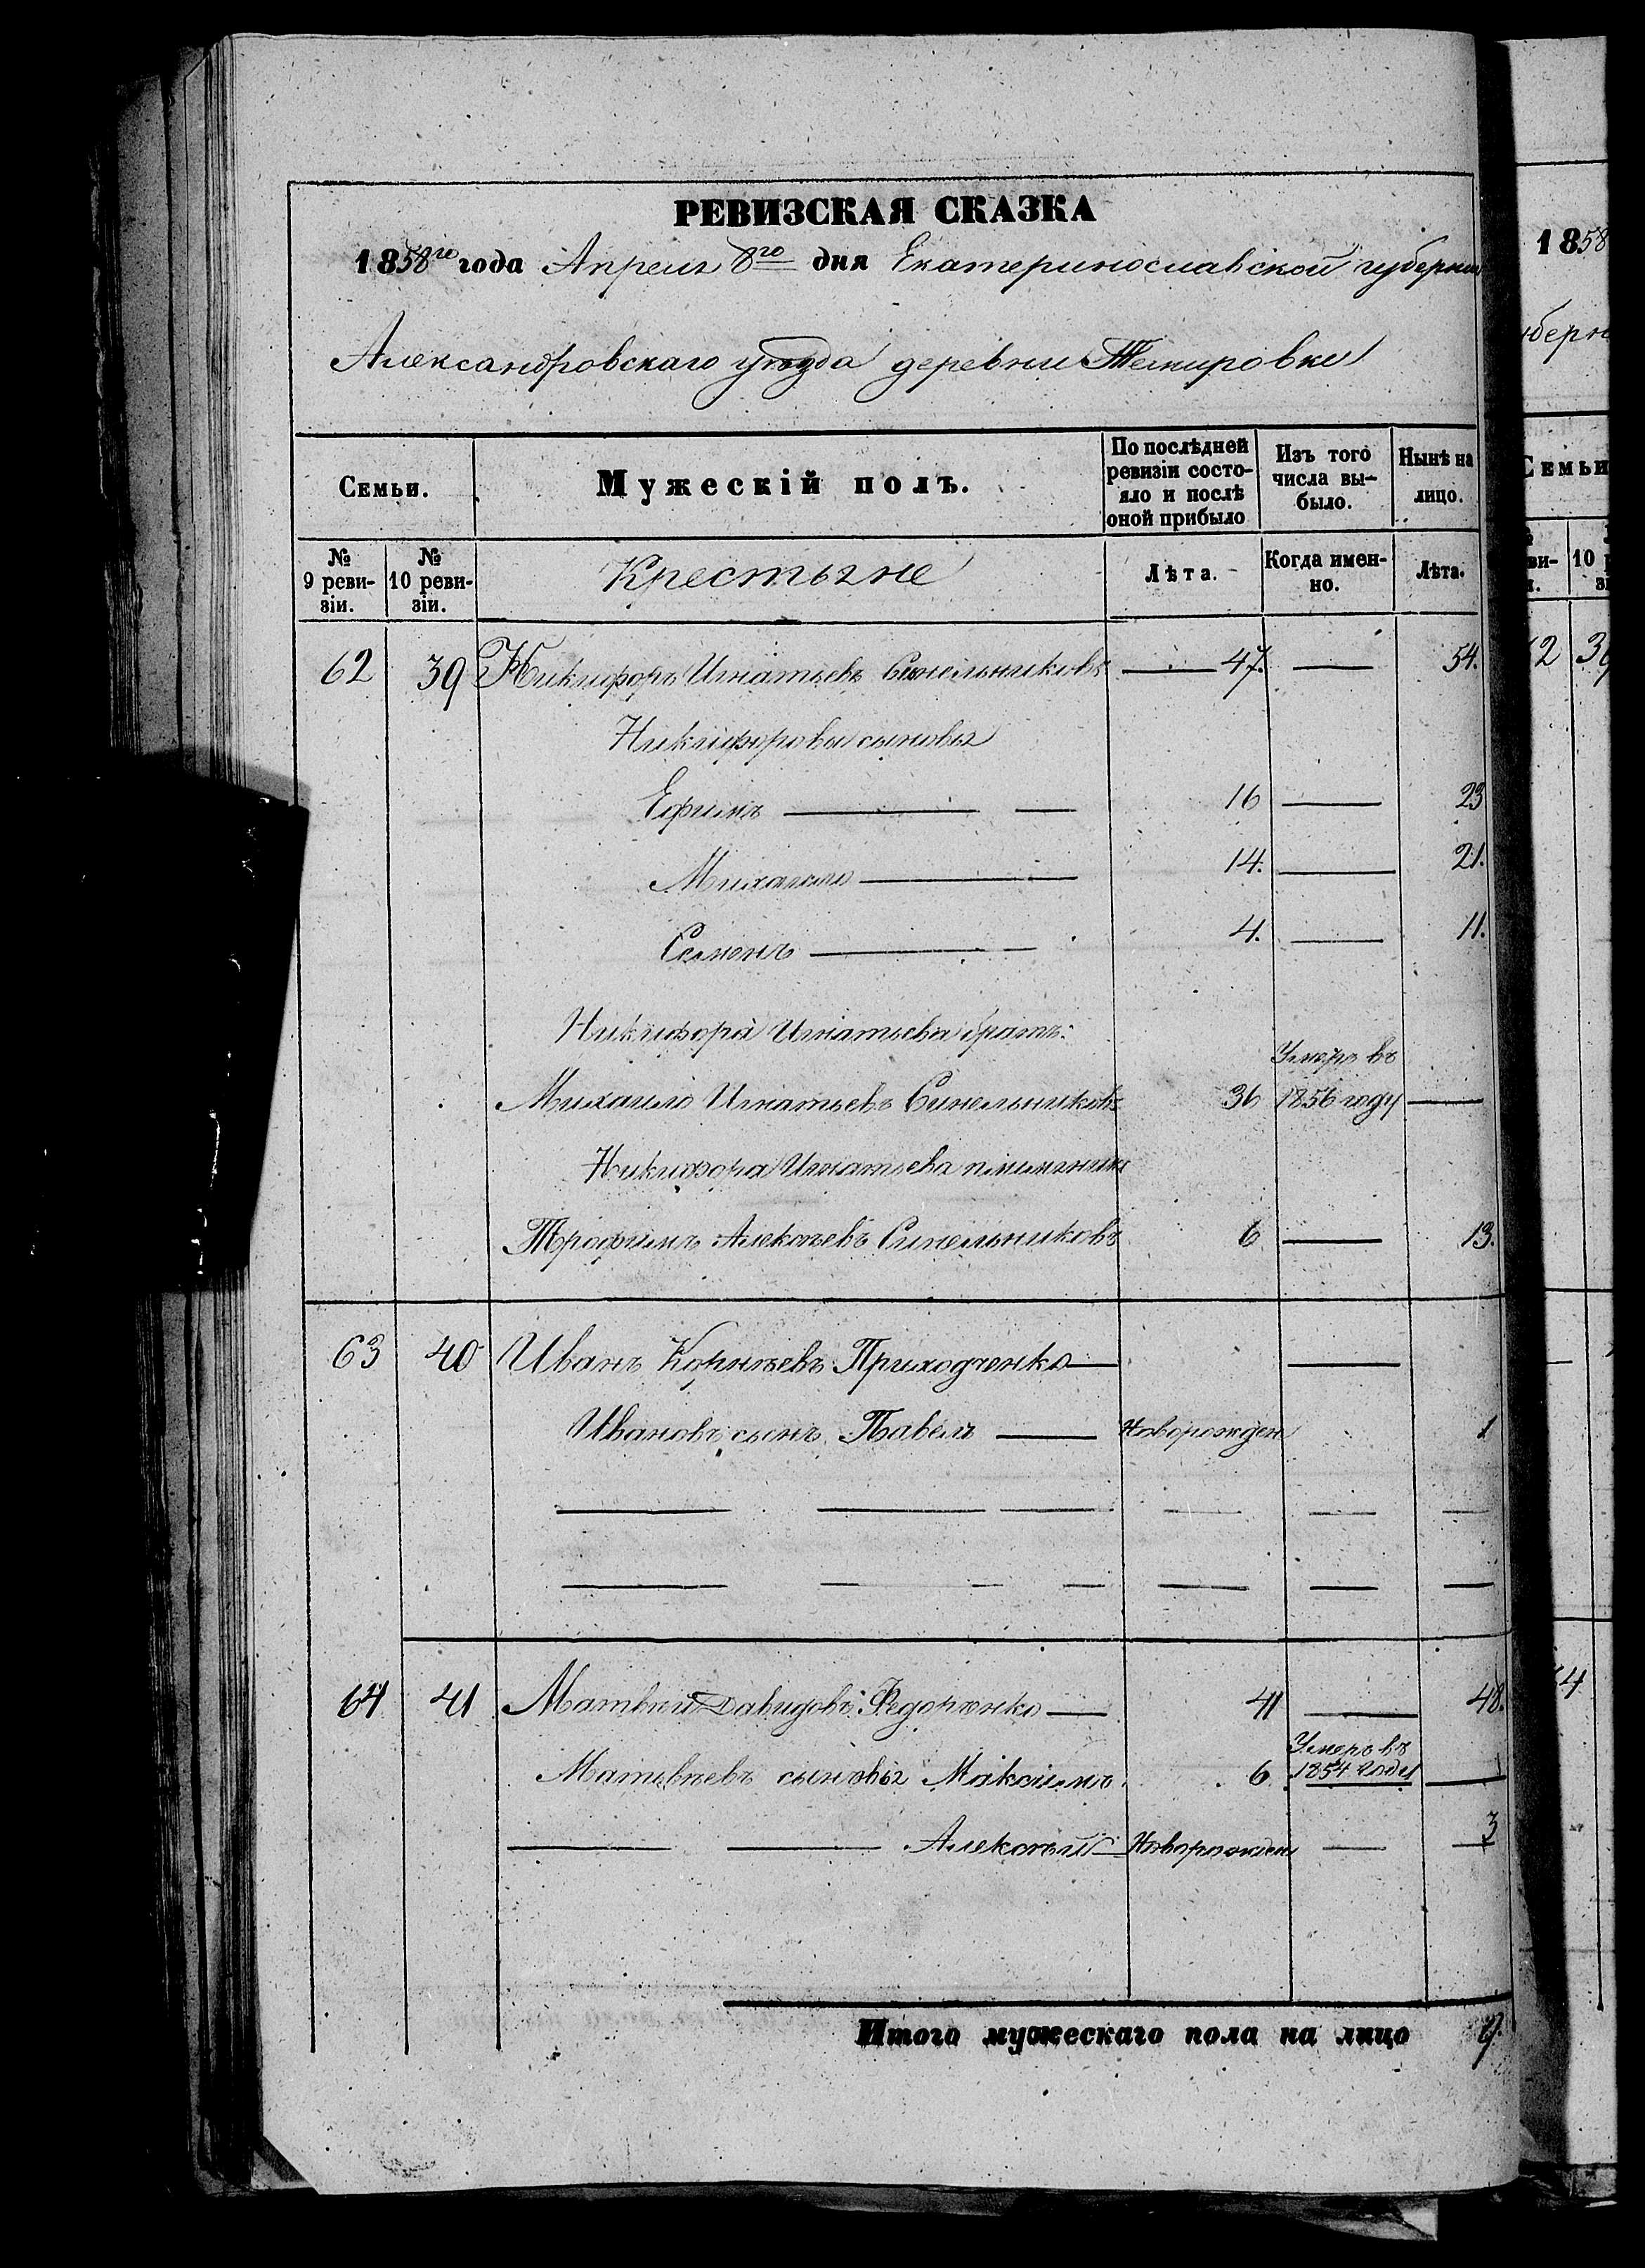 РЕВИЗСКАЯ СКАЗКА
1858го года Апреля 8го дня Екатеринославской губернии
Александровскаго уѣзда деревни Темировки
Семьи. Мужескій полъ. По послѣдней ревизіи состо-яло и послѣ оной прибыло Изъ того числа вы-было. Нынѣ на лицо.
№ 9 реви-зіи. № 10 реви-зіи. Крестьяне Лѣта. Когда имен-но. Лѣта.
62 39 Никифоръ Игнатьевъ Синельниковъ 47. 54.
Никифоровы сыновья
Ефимъ 16 23
Михайло 14. 21.
Семенъ 4. 11.
Никифора Игнатьева братъ:
Умеръ въ
Михайло Игнатьевъ Синельниковъ 36 1856 году
Никифора Игнатьева племянникъ
Трофимъ Алексѣевъ Синельниковъ 6 13.
63 40 Иванъ Корнѣевъ Приходченко
Ивановъ сынъ Павелъ Новорожден 1
64 41 Матвѣй Давидовъ Федорченко 41 48.
Умеръ въ
Матвѣевъ сыновья Максимъ 6 1854 году
Алексѣй Новорожден 3
Итого мужескаго пола на лицо
1858
Семьи
10
62 39
64